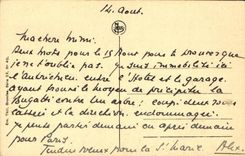 14. Aout.
Ma chere Mimi.
Deux mots pour le 15 Aout pour te prouver que
je ne t'oublie pas. Je suis immobilisé ici
à l'Autrichien entre l'Hotel et le garage
ayant trouvé le moyen de précipiter la
Bugatti contre un arbre: coupé deux roues
cassées et la direction endommagée.
Je pense partir demain ou après demain
pour Paris.
Tendres voeux pour la Ste Marie.
Alex